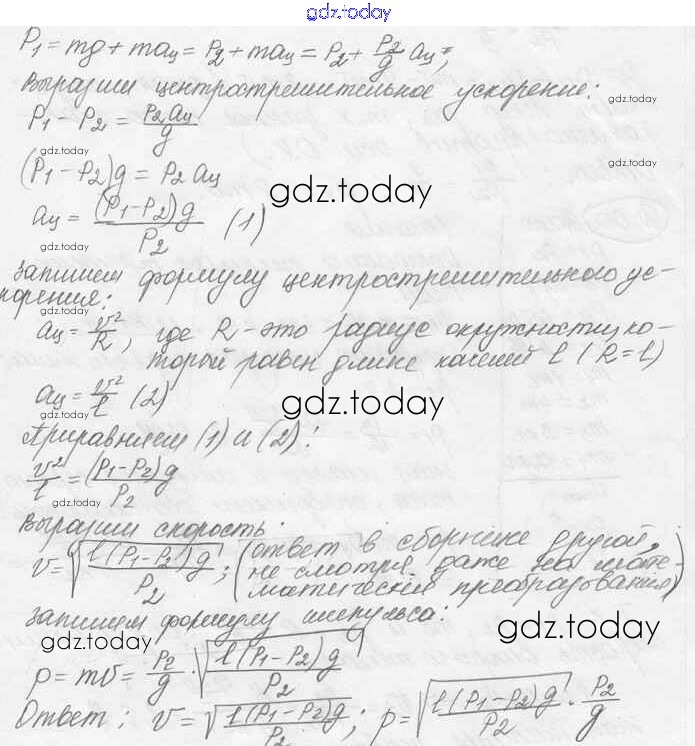 gdz.today
P₁ = mg + maц = P₂ + maц = P₂ + P₂/g aц;
Выразим центростремительное ускорение:
gdz.today
P₁ - P₂ = P₂aц/g
gdz.today
gdz.today
(P₁ - P₂)g = P₂aц
gdz.today
aц = (P₁ - P₂)g/P₂ (1)
gdz.today
Запишем формулу центростремительного ус-
корения:
gdz.today
aц = v²/R, где R - это радиус окружности, ко-
торой равен длине качелей l (R = l)
aц = v²/l (2)
gdz.today
gdz.today
Приравняем (1) и (2):
v²/l = (P₁ - P₂)g/P₂
gdz.today
Выразим скорость:
v = √(l(P₁ - P₂)g/P₂); (ответ в сборнике другой,
не смотря даже на мате-
матические преобразования)
Запишем формулу импульса:
gdz.today
gdz.today
p = mv = P₂/g √(l(P₁ - P₂)g/P₂)
gdz.today
Ответ: v = √(l(P₁ - P₂)g/P₂); p = √(l(P₁ - P₂)g/P₂) · P₂/g